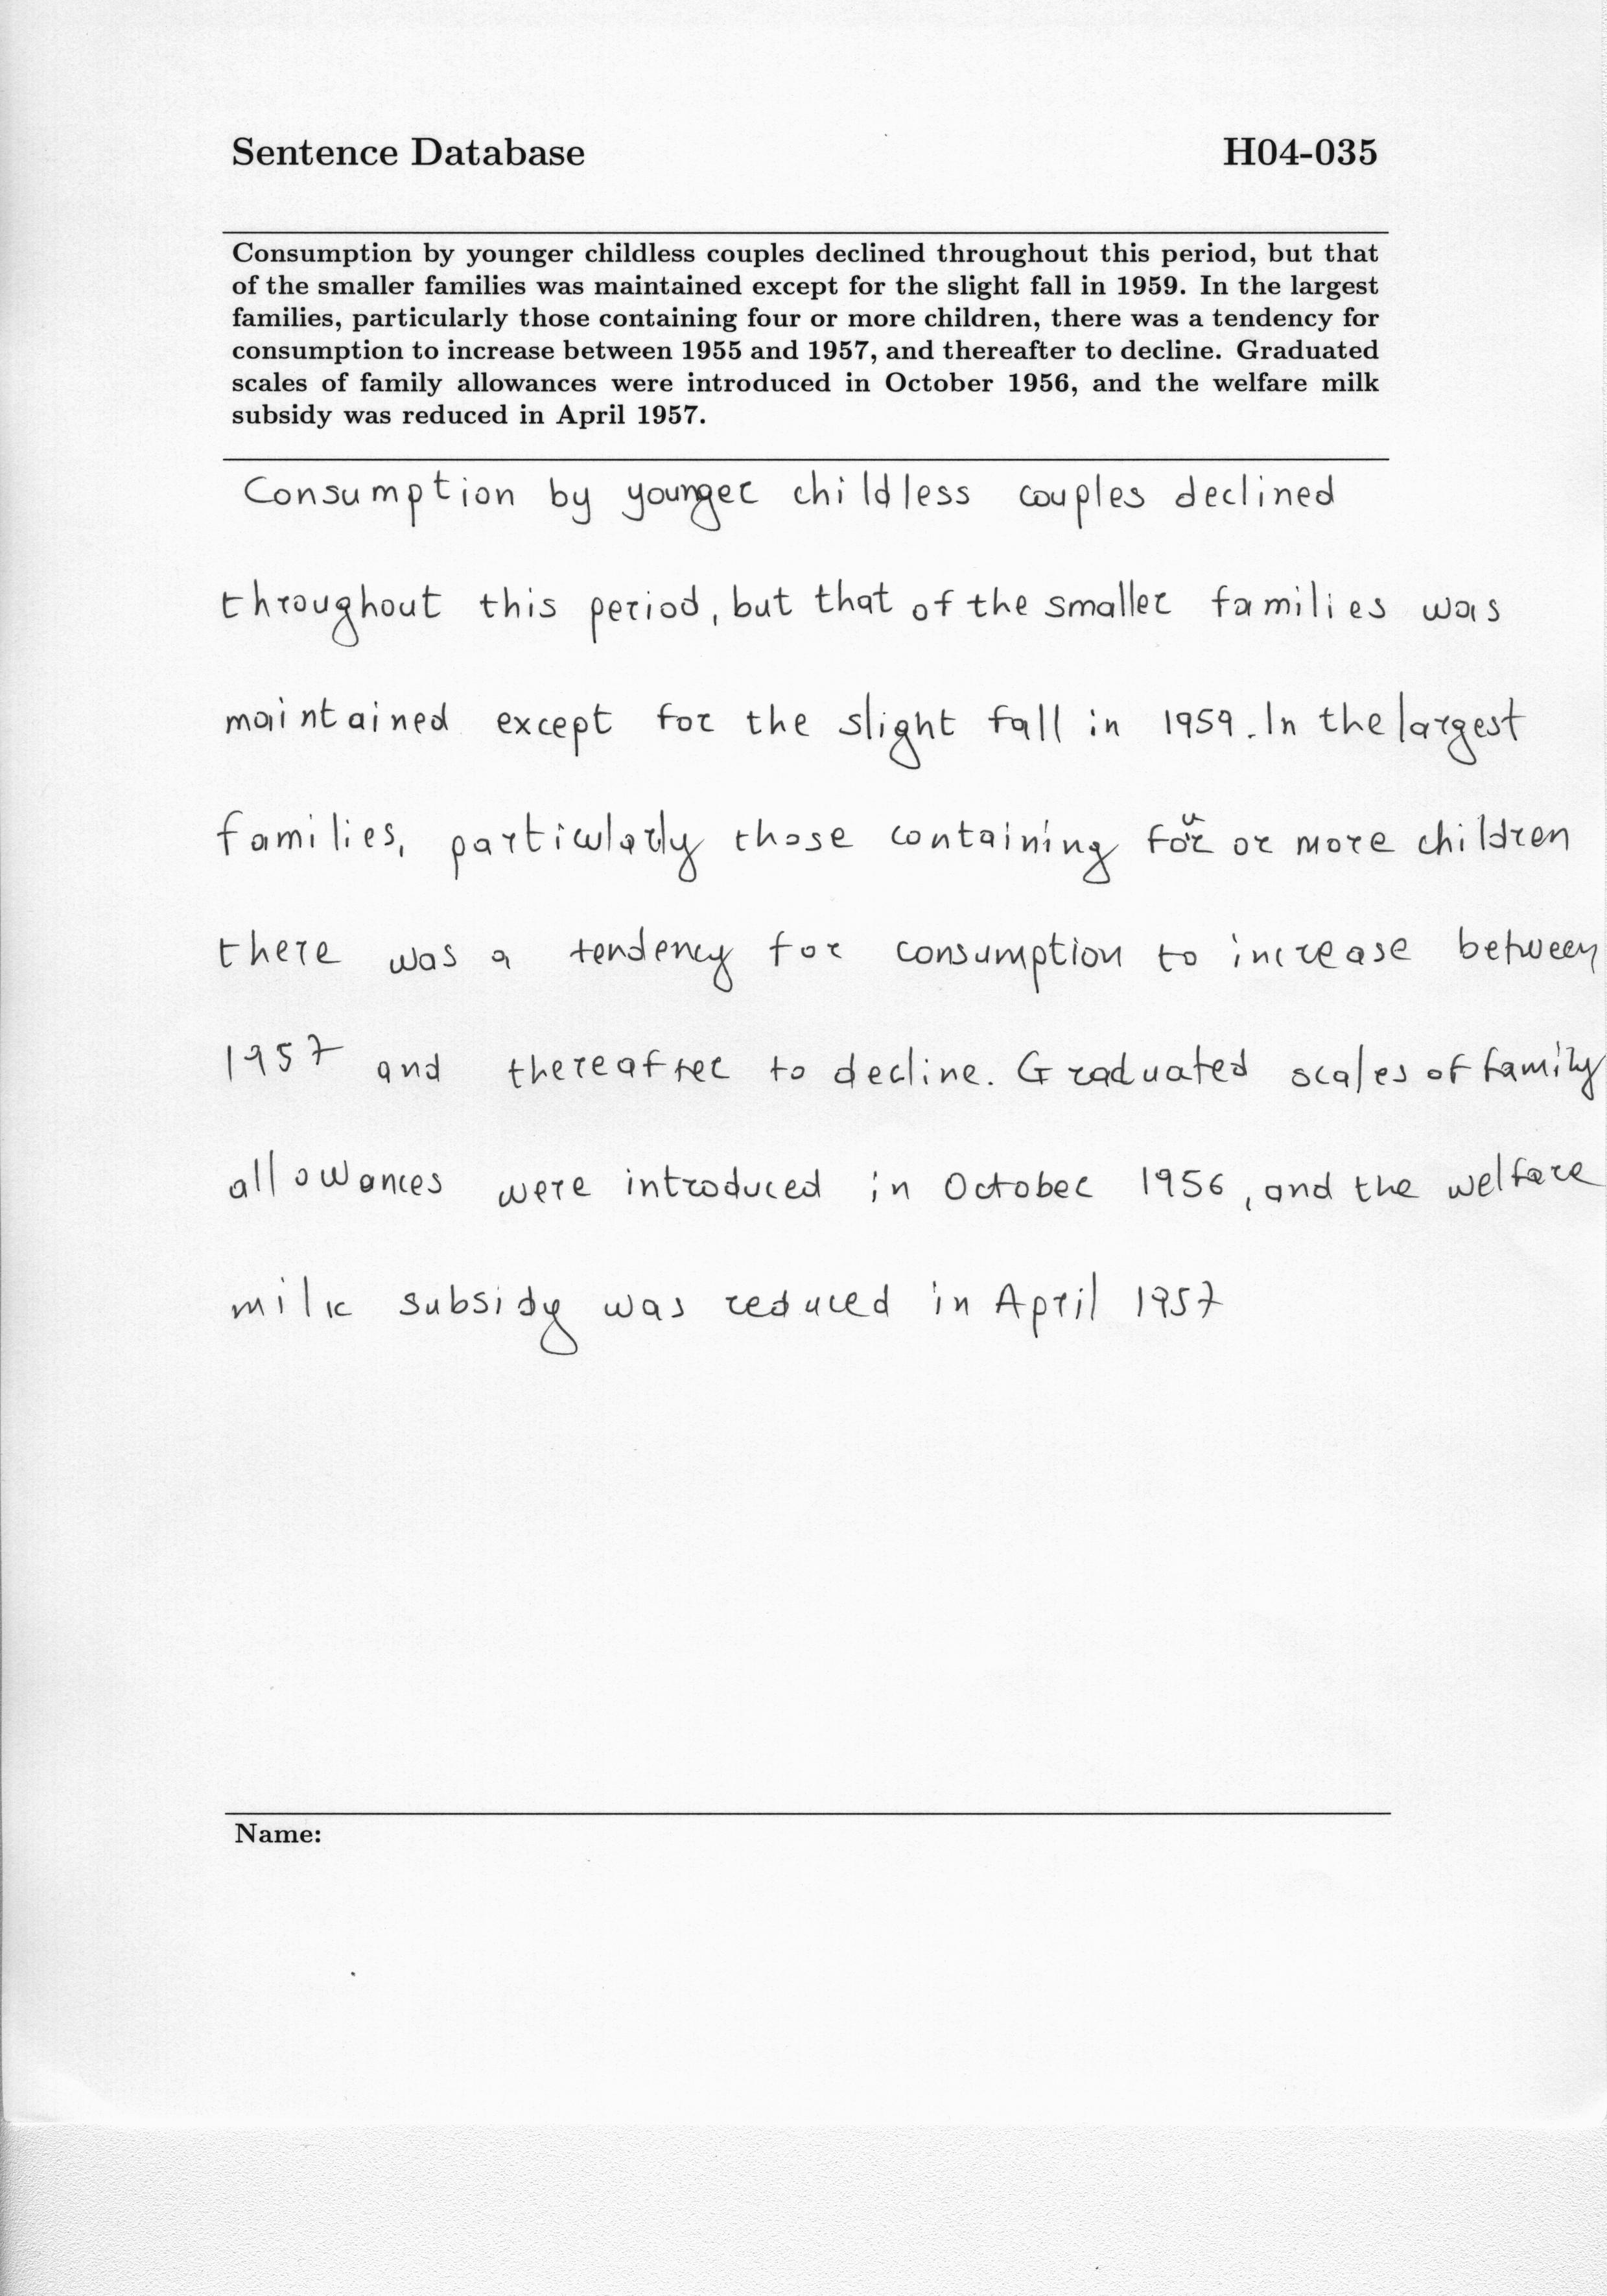 Sentence Database H04-035
Consumption by younger childless couples declined throughout this period, but that
of the smaller families was maintained except for the slight fall in 1959. In the largest
families, particularly those containing four or more children, there was a tendency for
consumption to increase between 1955 and 1957, and thereafter to decline. Graduated
scales of family allowances were introduced in October 1956, and the welfare milk
subsidy was reduced in April 1957.
Consumption by younger childless couples declined
throughout this period, but that of the smaller families was
maintained except for the slight fall in 1959. In the largest
families, particularly those containing four or more children
there was a tendency for consumption to increase between
1957 and thereafter to decline. Graduated scales of family
allowances were introduced in October 1956, and the welfare
milk subsidy was reduced in April 1957
Name: